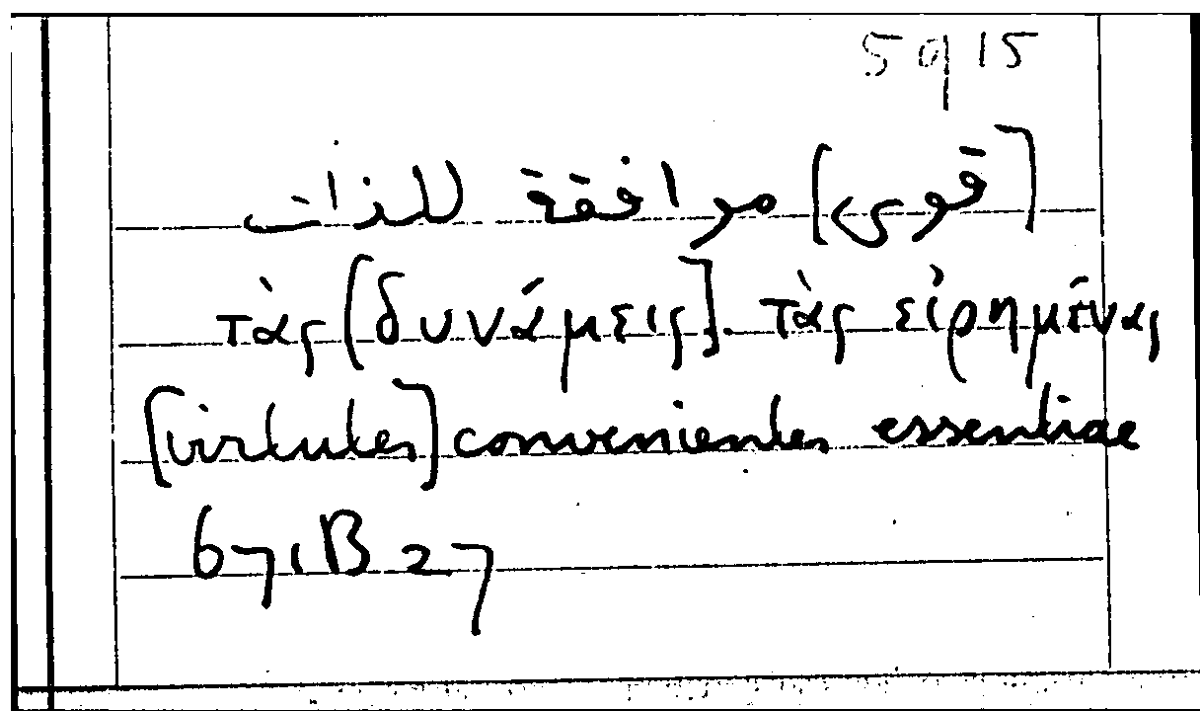 5915
[قوى] موافقة للذات
τὰς [δυνάμεις]. τὰς εἰρημένας
[virtutes] convenientes essentiae
671B27